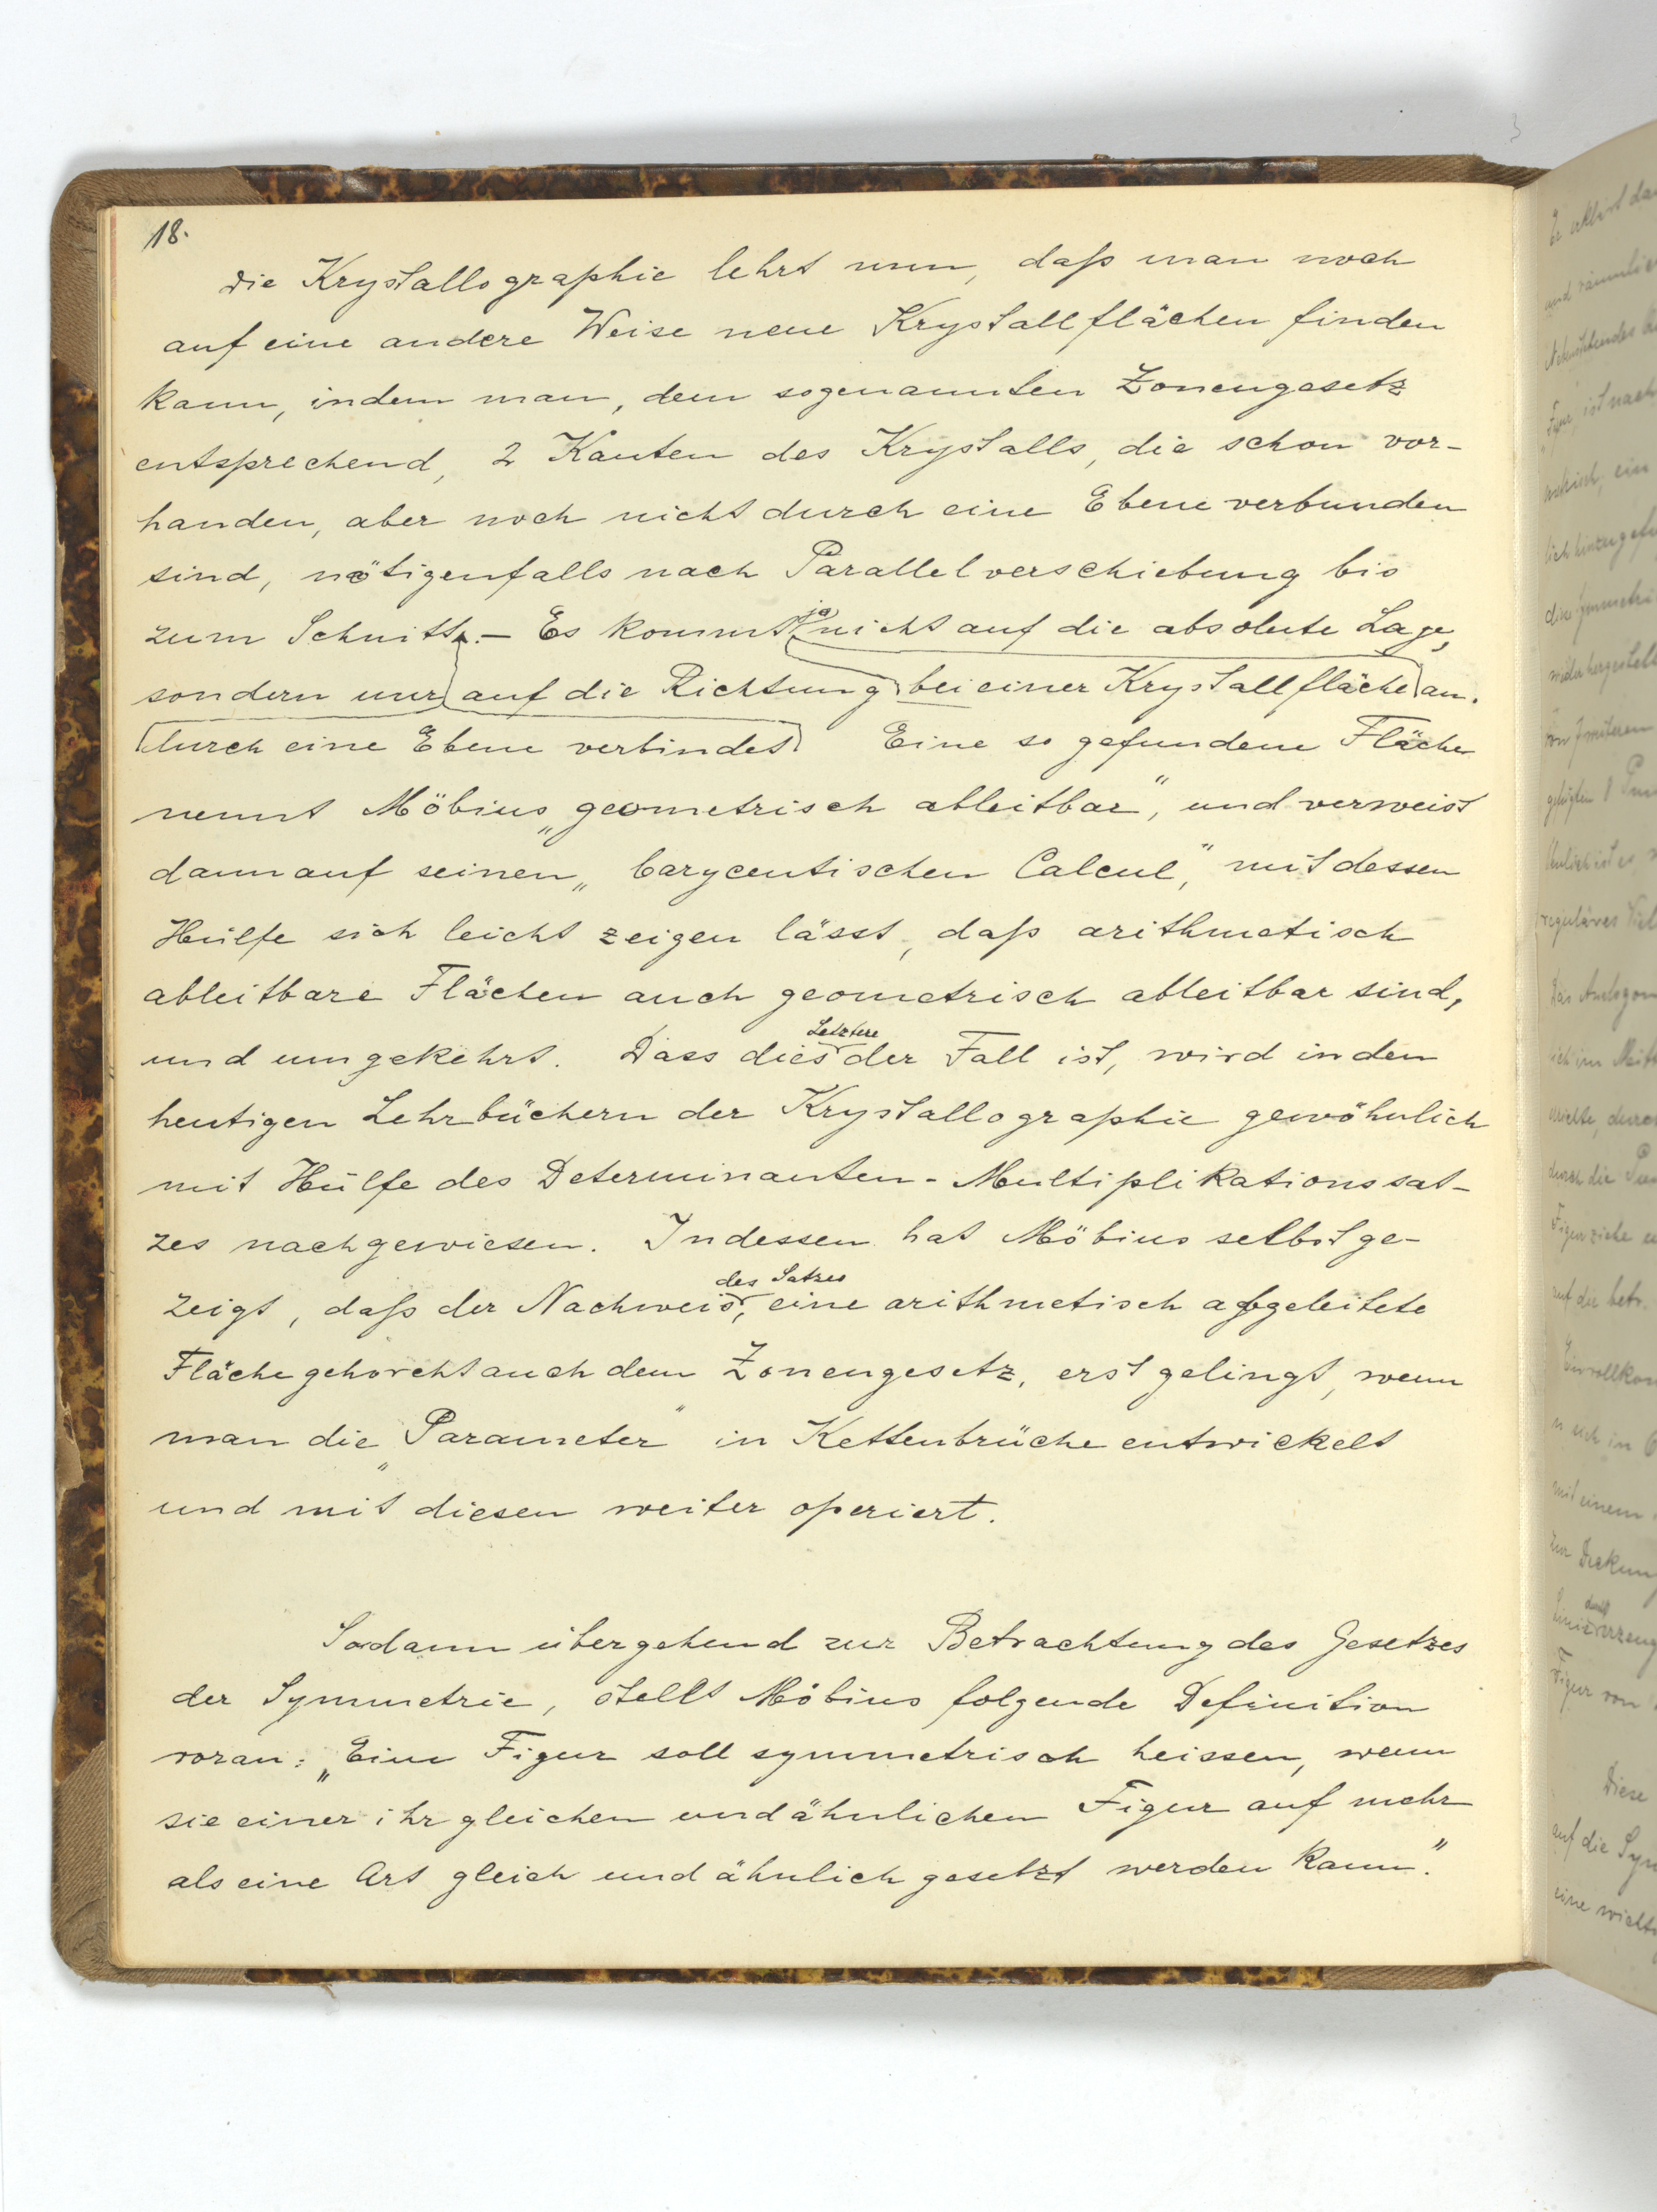 18.
Die Krystallographie lehrt nun, daß man noch
auf eine andere Weise neue Krystallflächen finden
kann, indem man, dem sogenannten Zonengesetz
entsprechend, 2 Kanten des Krystalls, die schon vor-
handen, aber noch nicht durch eine Ebene verbunden
sind, nötigenfalls nach Parallelverschiebung bis
zum Schnitt. – Es kommt ja nicht auf die absolute Lage,
sondern nur auf die Richtung bei einer Krystallfläche an.
durch eine Ebene verbindet Eine so gefundene Fläche
nennt Möbius „geometrisch ableitbar“, und verweist
dann auf seinen „barycentischen Calcul“, mit dessen
Hülfe sich leicht zeigen lässt, daß arithmetisch
ableitbare Flächen auch geometrisch ableitbar sind,
und umgekehrt. Dass dies Letztere der Fall ist, wird in den
heutigen Lehrbüchern der Krystallographie gewöhnlich
mit Hülfe des Determinanten-Multiplikationssat-
zes nachgewiesen. Indessen hat Möbius selbst ge-
zeigt, daß der Nachweis des Satzes, eine arithmetisch abgeleitete
Fläche gehorcht auch dem Zonengesetz, erst gelingt, wenn
man die „Parameter“ in Kettenbrüche entwickelt
und mit diesen weiter operiert.
Sodann übergehend zur Betrachtung des Gesetzes
der Symmetrie, stellt Möbius folgende Definition
voran: „Eine Figur soll symmetrisch heissen, wenn
sie einer ihr gleichen und ähnlichen Figur auf mehr
als eine Art gleich und ähnlich gesetzt werden kann.“